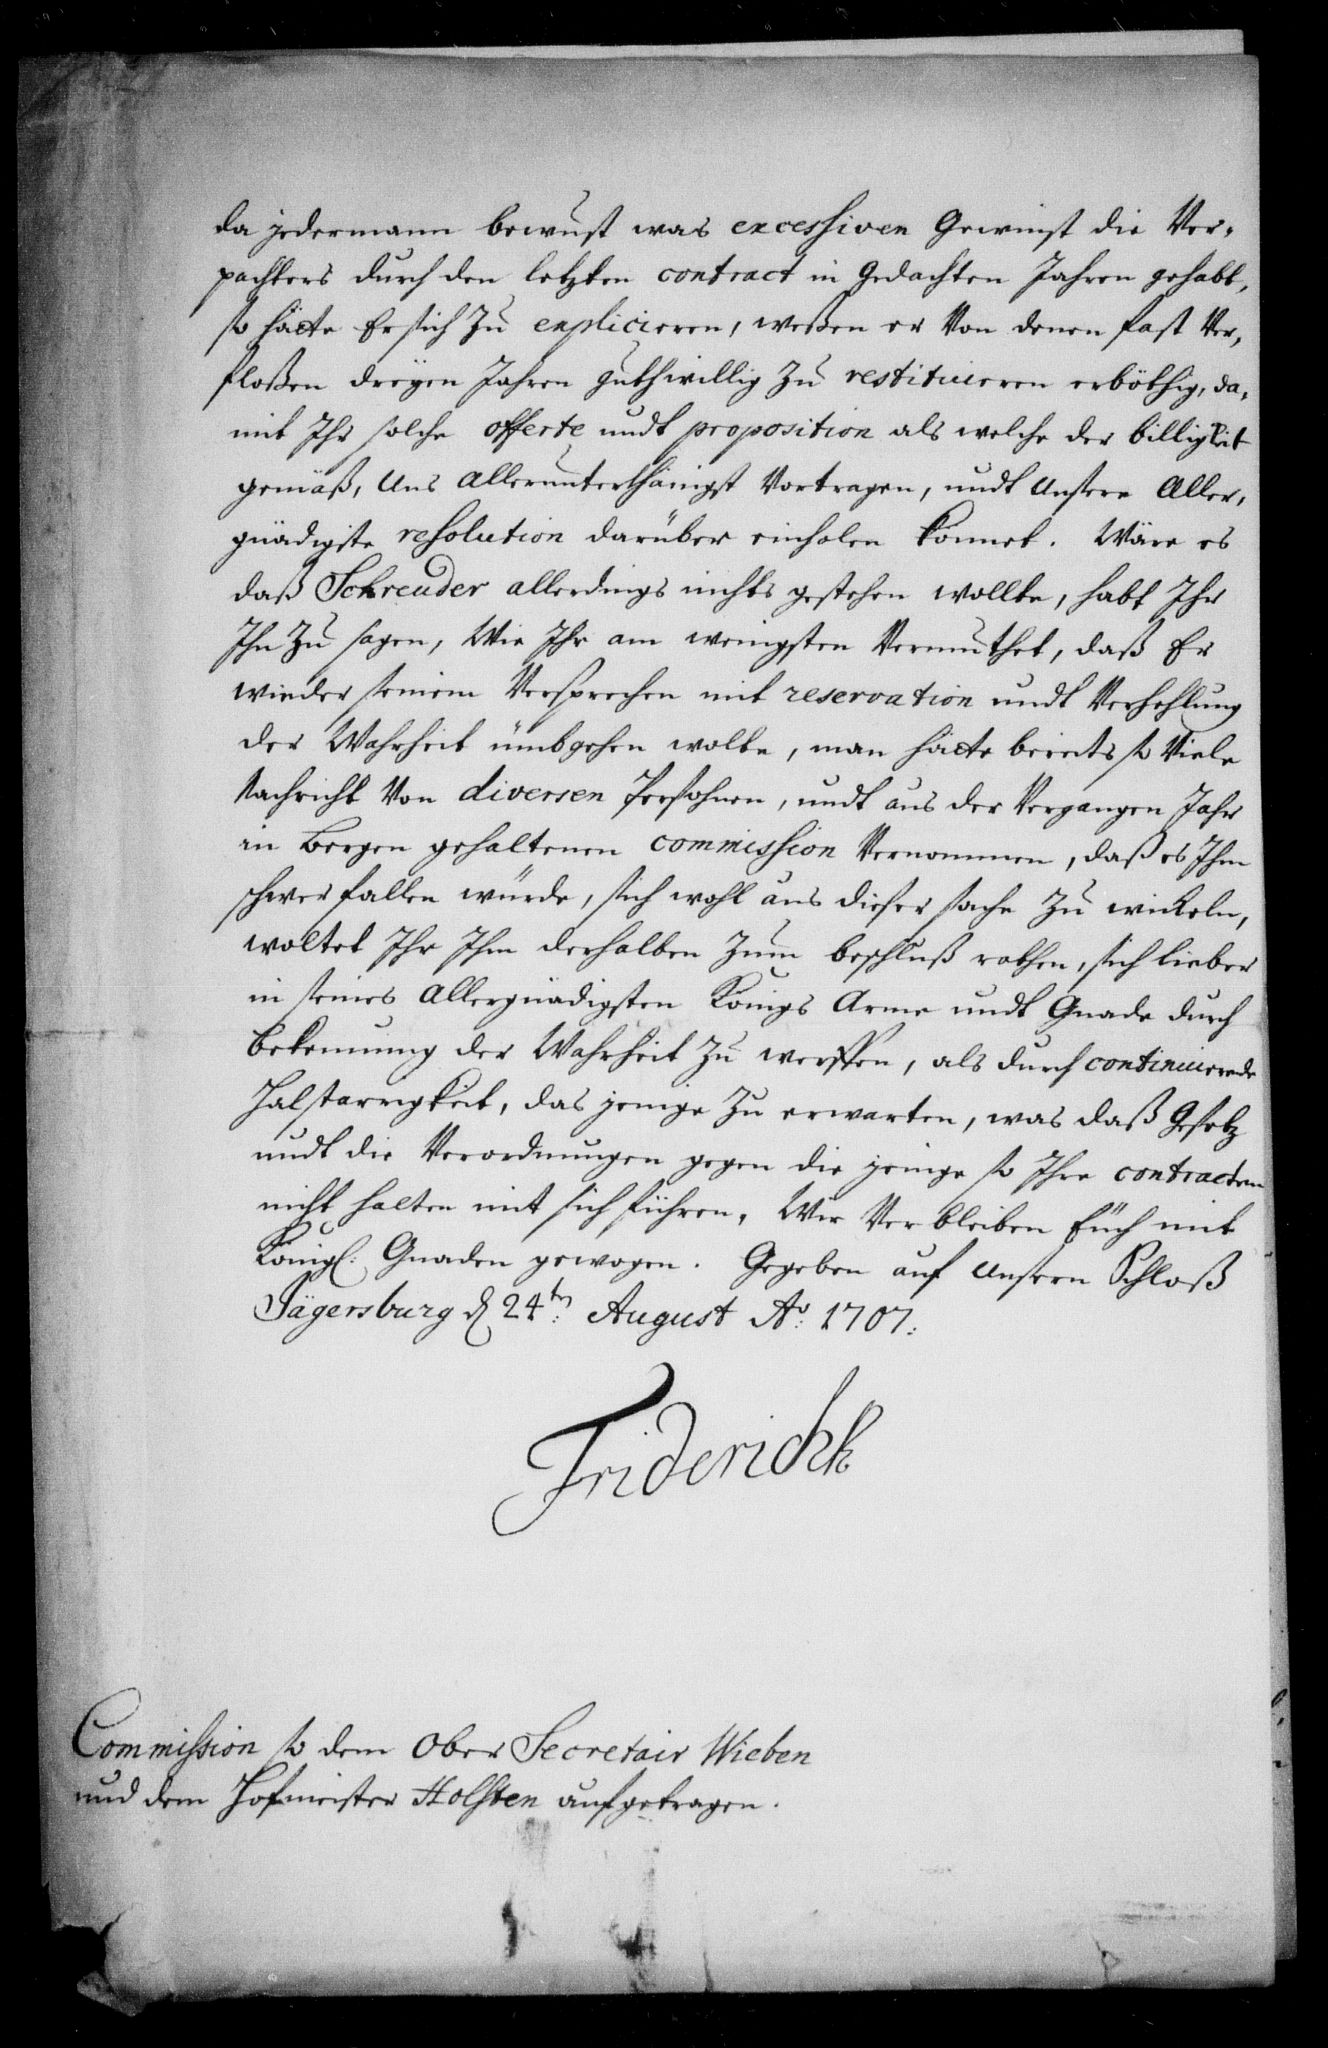 da jedermann bewust was excessiven Gewinst die Ver-
pachters durch den letzten contract in gedachten Jahren gehabt,
so hätte Er sich zu explicieren, weßen er von denen fast ver-
floßen dreyen Jahren guthwillig zu restituieren erböthig, da-
mit Ihr solche offerte undt proposition als welche der billigkeit
gemäß, Uns allerunterthänigst vortragen, undt Unsere Aller-
gnädigste resolution darüber einholen könnet. Wäre es
daß Schreuder allerdings nichts gestehen wollte, habt Ihr
Ihn zu sagen, Wie Ihr am wenigsten vermuthet, daß Er
wieder seinem Versprechen mit reservation undt Verhehlung
der Wahrheit ümbgehen wolte, man hätte bereits so viele
Nachricht von diversen Persohnen, undt aus der Vergangen Jahr
in Bergen gehaltenen commission vernommen, daß es Ihm
schwer fallen würde, sich wohl aus dieser sache zu wickeln,
woltet Ihr Ihm derhalben zum beschluß rathen, sich lieber
in seines Allergnädigsten Königs Arme undt Gnade durch
bekennung der Wahrheit zu werffen, als durch continuierende
Halstarrigkeit, das jenige zu erwarten, was daß Gesetz
undt die Verordnungen gegen die jenige so Ihre contracten
nicht halten mit sich führen. Wir verbleiben Euch mit
Königl: Gnaden gewogen. Gegeben auf Unsern Schloß
Jägersburg d 24ten: August Ao: 1707.
Friderichk
Commission so dem Ober Secretair Wieben
und dem Hofmeister Holsten aufgetragen.